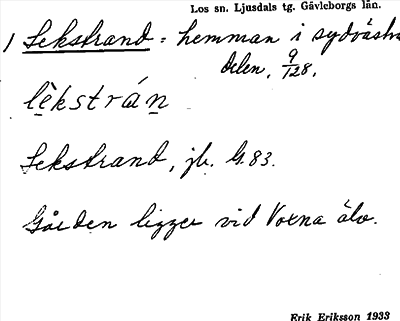 Los sn. Ljusdals tg. Gävleborgs län.
1 Lekstrand = hemman i sydvästra
delen, 9/128.
lèkstrán
Lekstrand, jb. G.83.
Gården ligger vid Voxna älv.
Erik Eriksson 1933